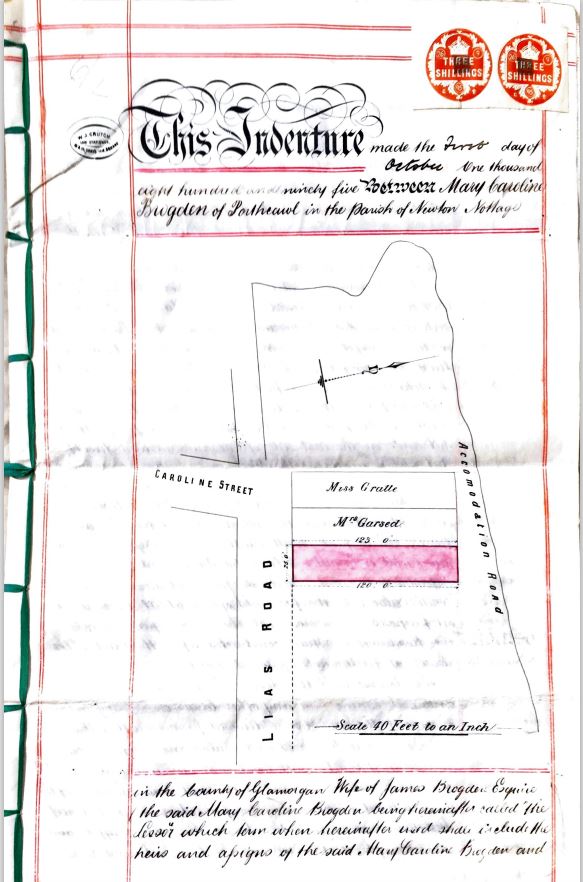 THREE SHILLINGS
THREE SHILLINGS
W. J. CRUTCH
This Indenture made the First day of
October One thousand
eight hundred and ninety five Between Mary Caroline
Brogden of Porthcawl in the Parish of Newton Nottage
CAROLINE STREET
Miss Gratte
Mrs Garsed
123. 0"
25.0"
120' 0"
LIAS ROAD
Accomodation Road
Scale 40 Feet to an Inch
in the County of Glamorgan Wife of James Brogden Esquire
the said Mary Caroline Brogden being hereinafter called "the
Lessor" which term when hereinafter used shall include the
heirs and assigns of the said Mary Caroline Brogden and